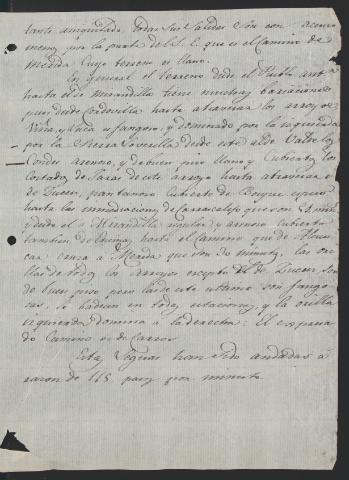 tante amigulado. todas sus salidas son con
meno, por la parte del S. E. que es el Camino de
Merida cuyo terreno es llano.
En general el terreno desde el Pueblo
hasta el de Mirandilla tiene muchas bariaciones
pues desde Cordovilla hasta atravesar los arroyos
y flaca y fangoso, y dominado por la izquierda
por la Sierra desde este al de Valde los
Condes arenoso, y de buen piso llano y Cubierto los
Costados de Jaras de este arroyo hasta atravesar el
de Lucen, pantanoso Cubierto de Bosque espeso
hasta las inmediaciones de Carrascalejo que son
y desde el Mirandilla regular y arenoso Cubierto
tambien de Encina, hasta el Camino que de
car cruza a Merida que son 30 minutos, las ori-
llas de todos los arroyos excepto el de Lucen son
de buen piso pero las de este ultimo son fango-
sas, se badean en todas estaciones, y la orilla
izquierda domina a la derecha: El expresa-
do Camino es de Carros
Estas Leguas han sido andadas á
razon de 115 pasos por minuto